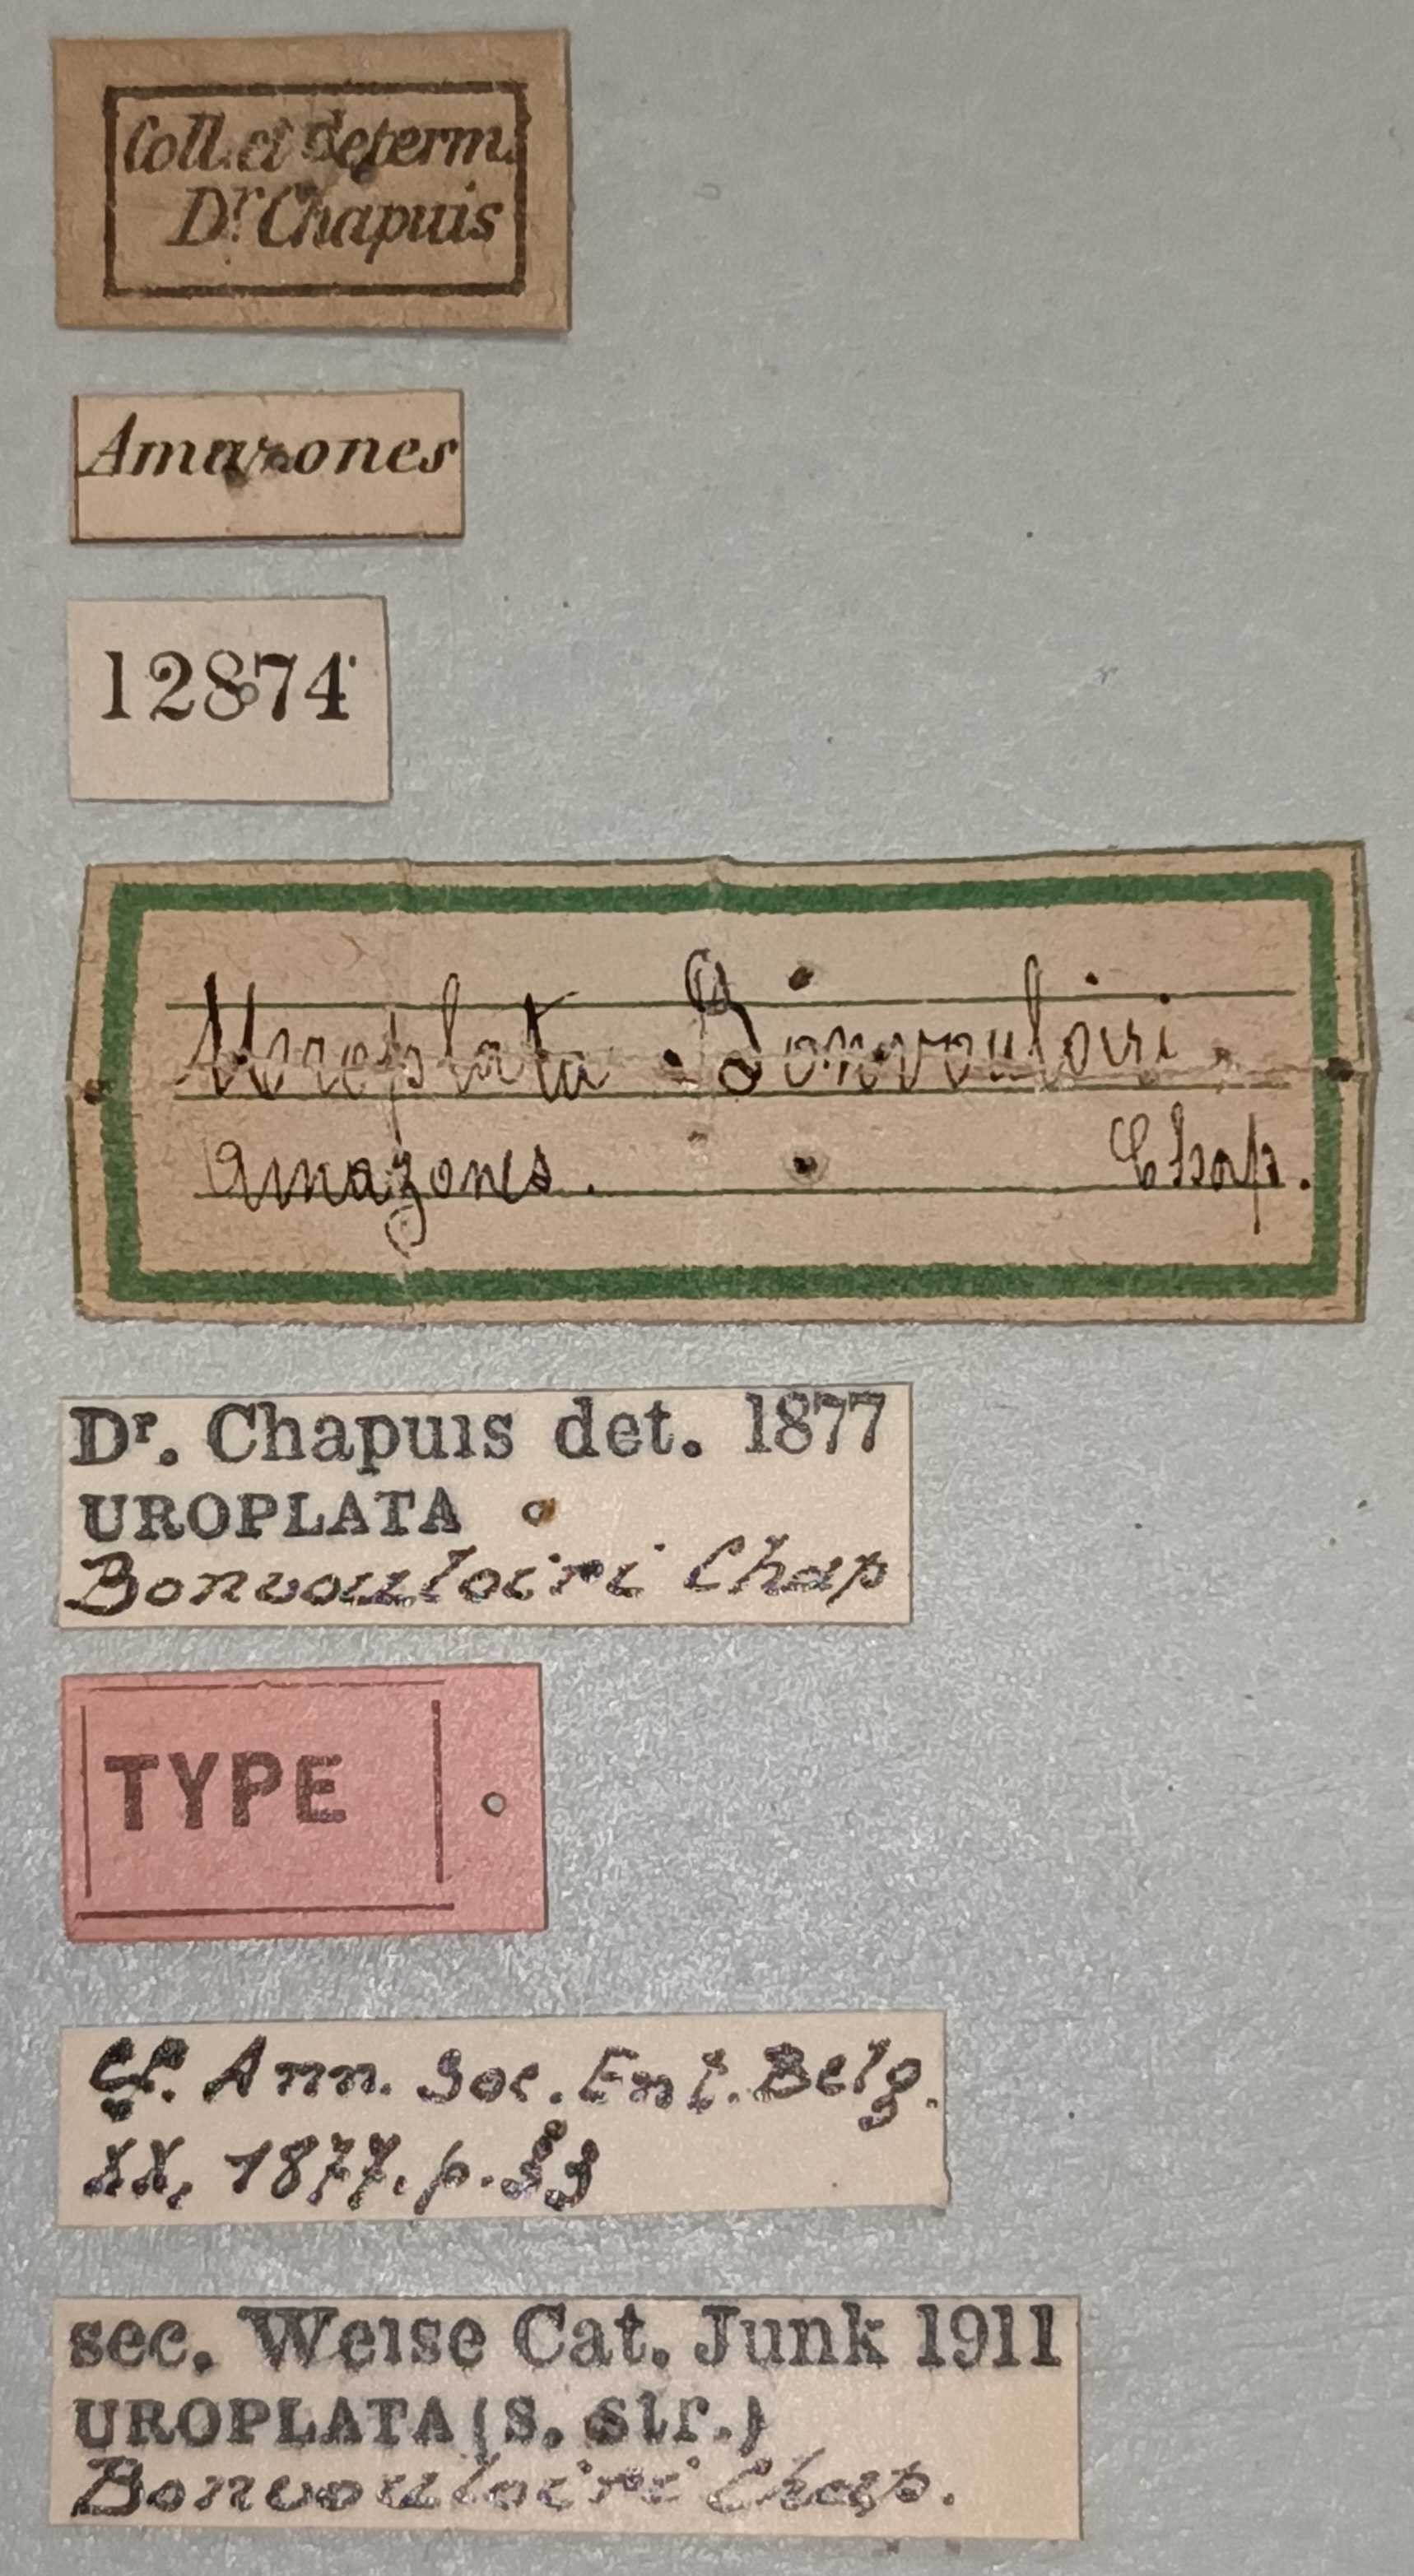 Coll. et determ.
Dr. Chapuis
Amazones
12874
Uroplata Bonvouloiri
Amazones. Chap.
Dr. Chapuis det. 1877
UROPLATA
Bonvouloiri Chap
TYPE
Cf. Ann. Soc. Ent. Belg.
XX, 1877. p. 33
sec. Weise Cat. Junk 1911
UROPLATA (s. str.)
Bonvouloiri Chap.